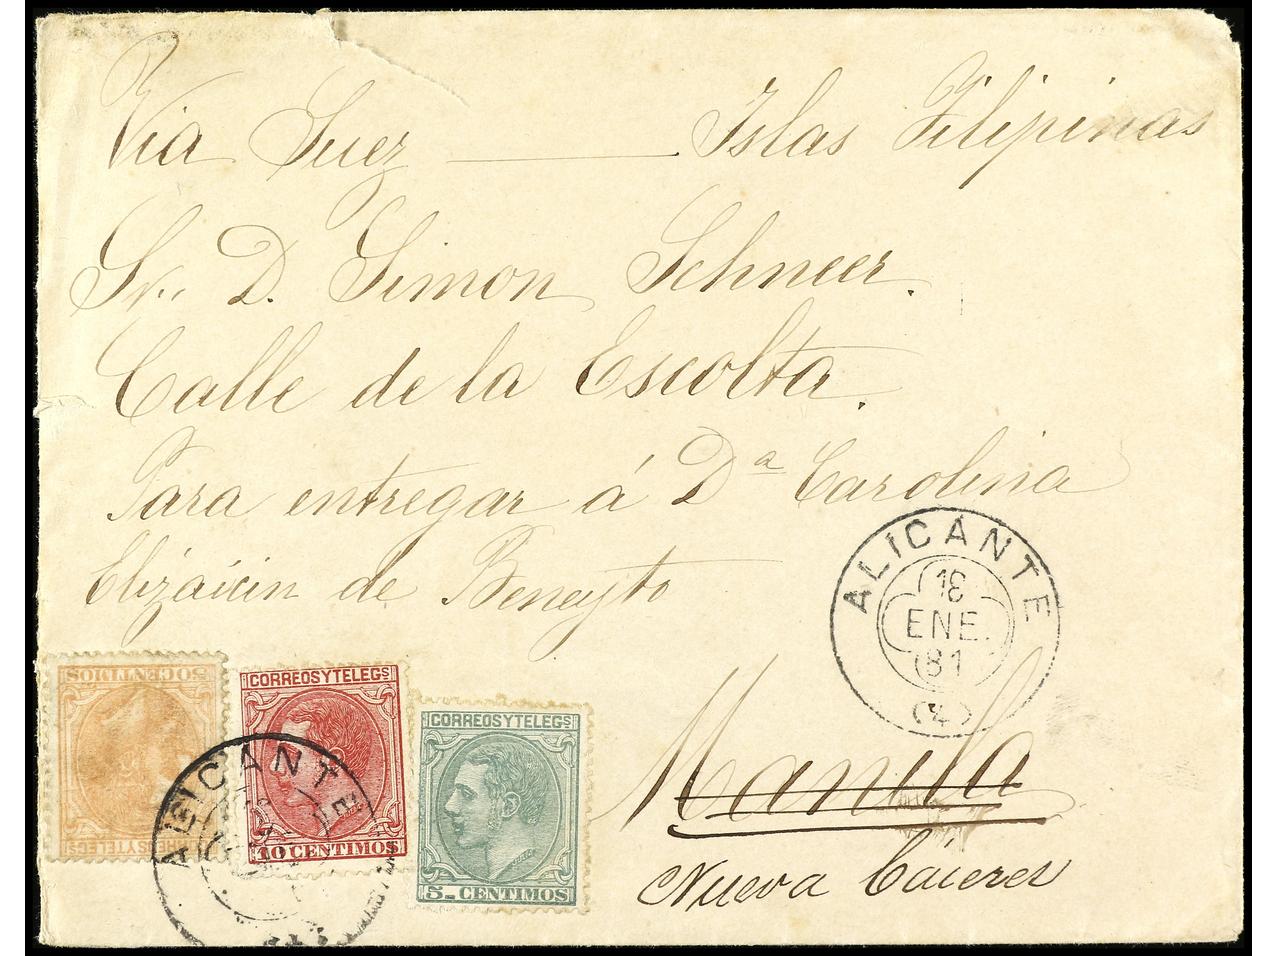 Via Suez — Islas Filipinas
Sr. D. Simon Schneer.
Calle de la Escolta.
Para entregar á Dª Carolina
Elizaicin de Beneyto
ALICANTE
18
ENE.
81
(4)
Manila
Nueva Caceres
50 CENTIMOS
CORREOS Y TELEGS
CORREOS Y TELEGS
10 CENTIMOS
CORREOS Y TELEGS
5 CENTIMOS
ALICANTE